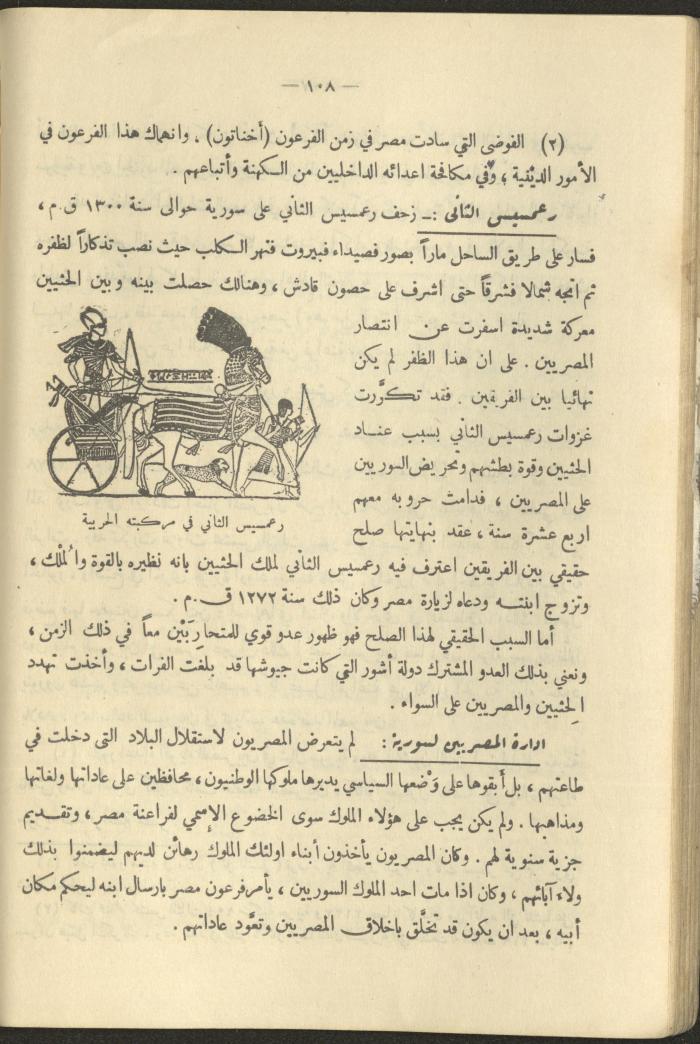 — ١٠٨ —
(٢) الفوضى التي سادت مصر في زمن الفرعون (أخناتون) . وانهماك هذا الفرعون في
الأمور الدينية ؛ وفي مكافحة اعدائه الداخليين من الكهنة وأتباعهم .
رعمسيس الثاني : ــ زحف رعمسيس الثاني على سورية حوالى سنة ١٣٠٠ ق.م ،
فسار على طريق الساحل ماراً بصور فصيداء فبيروت فنهر الكلب حيث نصب تذكاراً لظفره
ثم اتجه شمالا فشرقاً حتى اشرف على حصون قادش ، وهنالك حصلت بينه وبين الحثيين
معركة شديدة اسفرت عن انتصار
المصريين . على ان هذا الظفر لم يكن
نهائيا بين الفريقين . فقد تكرَّرت
غزوات رعمسيس الثاني بسبب عناد
الحثيين وقوة بطشهم وتحريض السوريين
على المصريين ، فدامت حروبه معهم
اربع عشرة سنة ، عقد بنهايتها صلح
رعمسيس الثاني في مركبته الحربية
حقيقي بين الفريقين اعترف فيه رعمسيس الثاني لملك الحثيين بانه نظيره بالقوة والمُلك ،
وتزوج ابنته ودعاه لزيارة مصر وكان ذلك سنة ١٢٧٢ ق . م .
أما السبب الحقيقي لهذا الصلح فهو ظهور عدو قوي للمتحارِبَيْن معاً في ذلك الزمن ،
ونعني بذلك العدو المشترك دولة أشور التي كانت جيوشها قد بلغت الفرات ، وأخذت تهدد
الحِثيين والمصريين على السواء .
ادارة المصريين لسورية : لم يتعرض المصريون لاستقلال البلاد التى دخلت في
طاعتهم ، بل أبقوها على وَضعها السياسي يديرها ملوكها الوطنيون ، محافظين على عاداتها ولغاتها
ومذاهبها . ولم يكن يجب على هؤلاء الملوك سوى الخضوع الإسمي لفراعنة مصر ، وتقديم
جزية سنوية لهم . وكان المصريون يأخذون أبناء اولئك الملوك رهائن لديهم ليضمنوا بذلك
ولاء آبائهم ، وكان اذا مات احد الملوك السوريين ، يأمر فرعون مصر بارسال ابنه ليحكم مكان
أبيه ، بعد ان يكون قد تخلَّق باخلاق المصريين وتعوَّد عاداتهم .